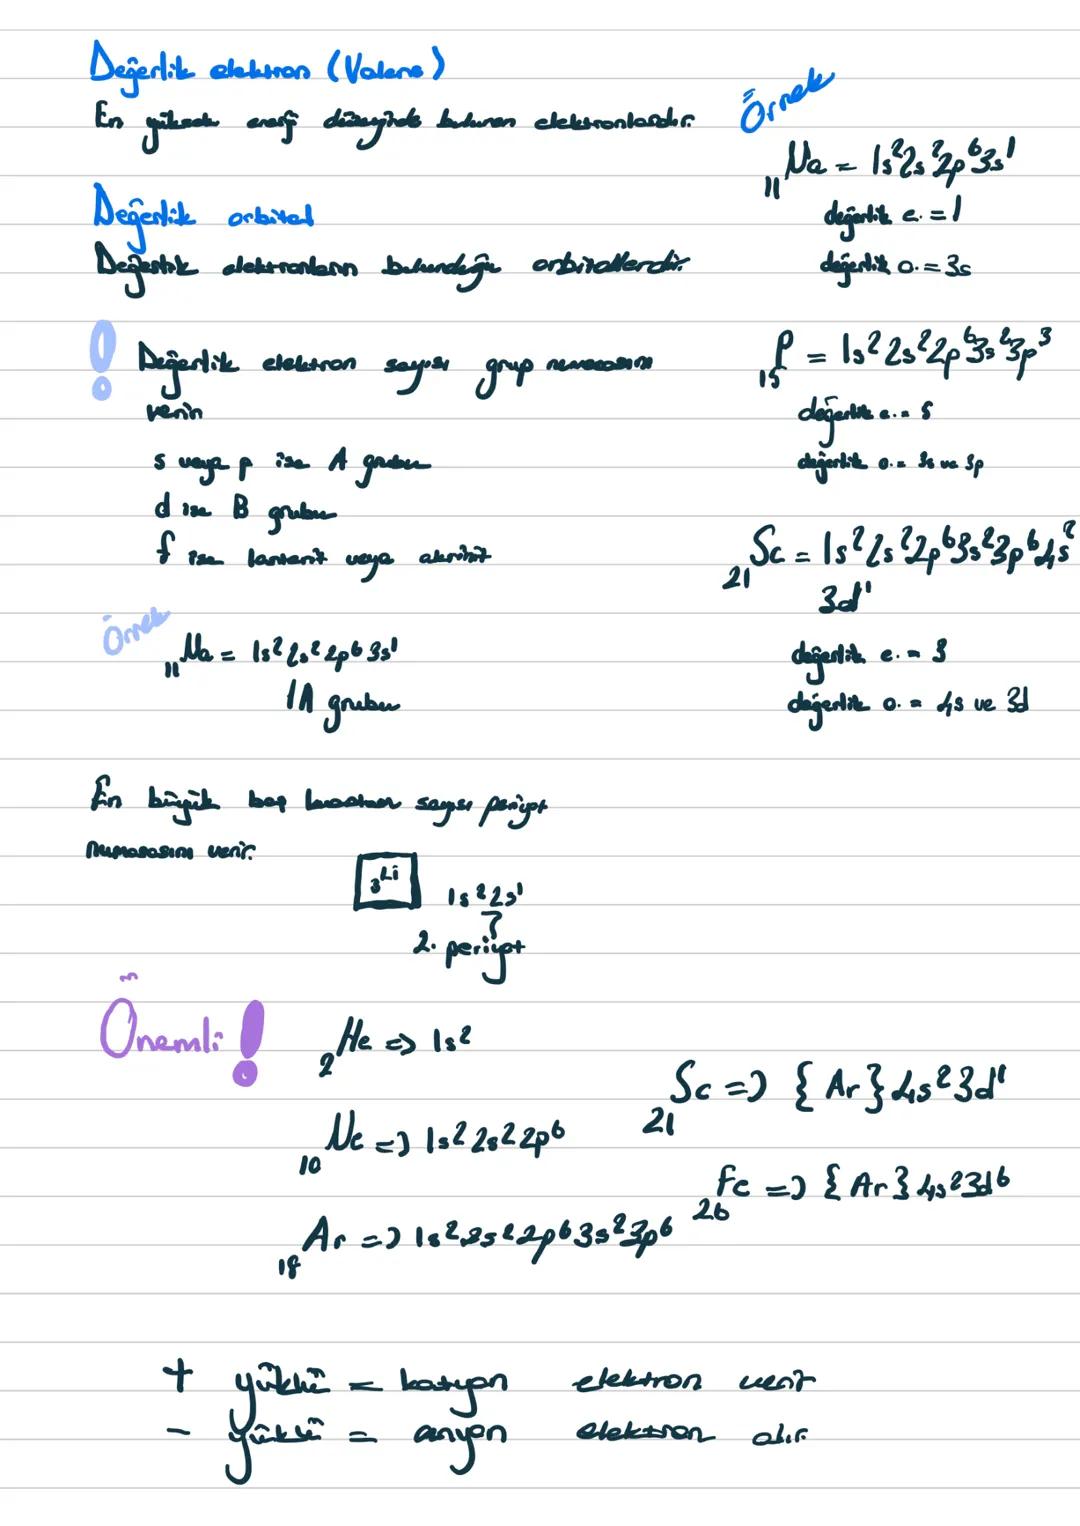 Değerlik elektron (Valans)
En yüksek enerji düzeyinde bulunan elektronlardır.
Değerlik orbital
Değerlik elektronların bulunduğu orbitallerdir.
! Değerlik elektron sayısı grup numarasını
verir
s veya p ise A grubu
d ise B grubu
f ise lantanit veya aktinit
Örnek
₁₁Na = 1s²2s²2p⁶3s¹
1A grubu
Örnek
₁₁Na = 1s²2s²2p⁶3s¹
değerlik e. = 1
değerlik o. = 3s
₁₅P = 1s²2s²2p⁶3s²3p³
değerlik e. = 5
değerlik o. = 3s ve 3p
₂₁Sc = 1s²2s²2p⁶3s²3p⁶4s²
3d¹
değerlik e. = 3
değerlik o. = 4s ve 3d
En büyük baş katsayı periyot
numarasını verir.
₃Li 1s²2s¹
2. periyot
Önemli!
₂He => 1s²
₁₀Ne => 1s²2s²2p⁶
₁₈Ar => 1s²2s²2p⁶3s²3p⁶
₂₁Sc => {Ar}4s²3d¹
₂₆Fe => {Ar}4s²3d⁶
+ yüklü = katyon elektron verir
- yüklü = anyon elektron alır.